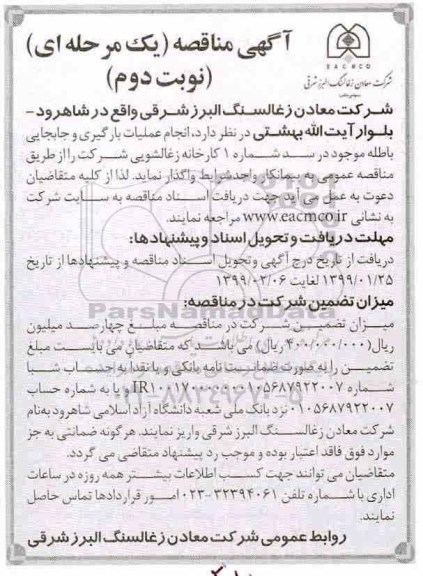 آگهی مناقصه (یک مرحله ای)
(نوبت دوم)
EACMCO
شرکت معادن زغالسنگ البرز شرقی
شرکت معادن زغالسنگ البرز شرقی واقع در شاهرود -
بلوار آیت الله بهشتی در نظر دارد، انجام عملیات بارگیری و جابجایی
باطله موجود در سد شماره ۱ کارخانه زغالشویی شرکت را از طریق
مناقصه عمومی به پیمانکار واجد شرایط واگذار نماید. لذا از کلیه متقاضیان
دعوت به عمل می آید جهت دریافت اسناد مناقصه به سایت شرکت
به نشانی www.eacmco.ir مراجعه نمایند.
مهلت دریافت و تحویل اسناد و پیشنهادها:
دریافت از تاریخ درج آگهی وتحویل اسناد مناقصه و پیشنهادها از تاریخ
۱۳۹۹/۰۱/۲۵ لغایت ۱۳۹۹/۰۲/۰۶
میزان تضمین شرکت در مناقصه:
میزان تضمین شرکت در مناقصه مبلغ چهارصد میلیون
ریال(۴۰۰/۰۰۰/۰۰۰ ریال) می باشد که متقاضیان می بایست مبلغ
تضمین را به صورت ضمانت نامه بانکی و یا نقدا به حساب شبا
شماره IR۱۰۰۱۷۰۰۰۰۰۰۰۱۰۵۶۸۷۹۲۲۰۰۷ و یا به شماره حساب
۰۱۰۵۶۸۷۹۲۲۰۰۷ نزد بانک ملی شعبه دانشگاه آزاد اسلامی شاهرود به نام
شرکت معادن زغالسنگ البرز شرقی واریز نمایند. هرگونه ضمانتی به جز
موارد فوق فاقد اعتبار بوده و موجب رد پیشنهاد متقاضی می گردد.
متقاضیان می توانند جهت کسب اطلاعات بیشتر همه روزه در ساعات
اداری با شماره تلفن ۳۲۳۹۴۰۶۱-۰۲۳ امور قراردادها تماس حاصل
نمایند.
روابط عمومی شرکت معادن زغالسنگ البرز شرقی
ParsNamadData
۰۲۱-۸۸۳۴۹۶۷۰-۵